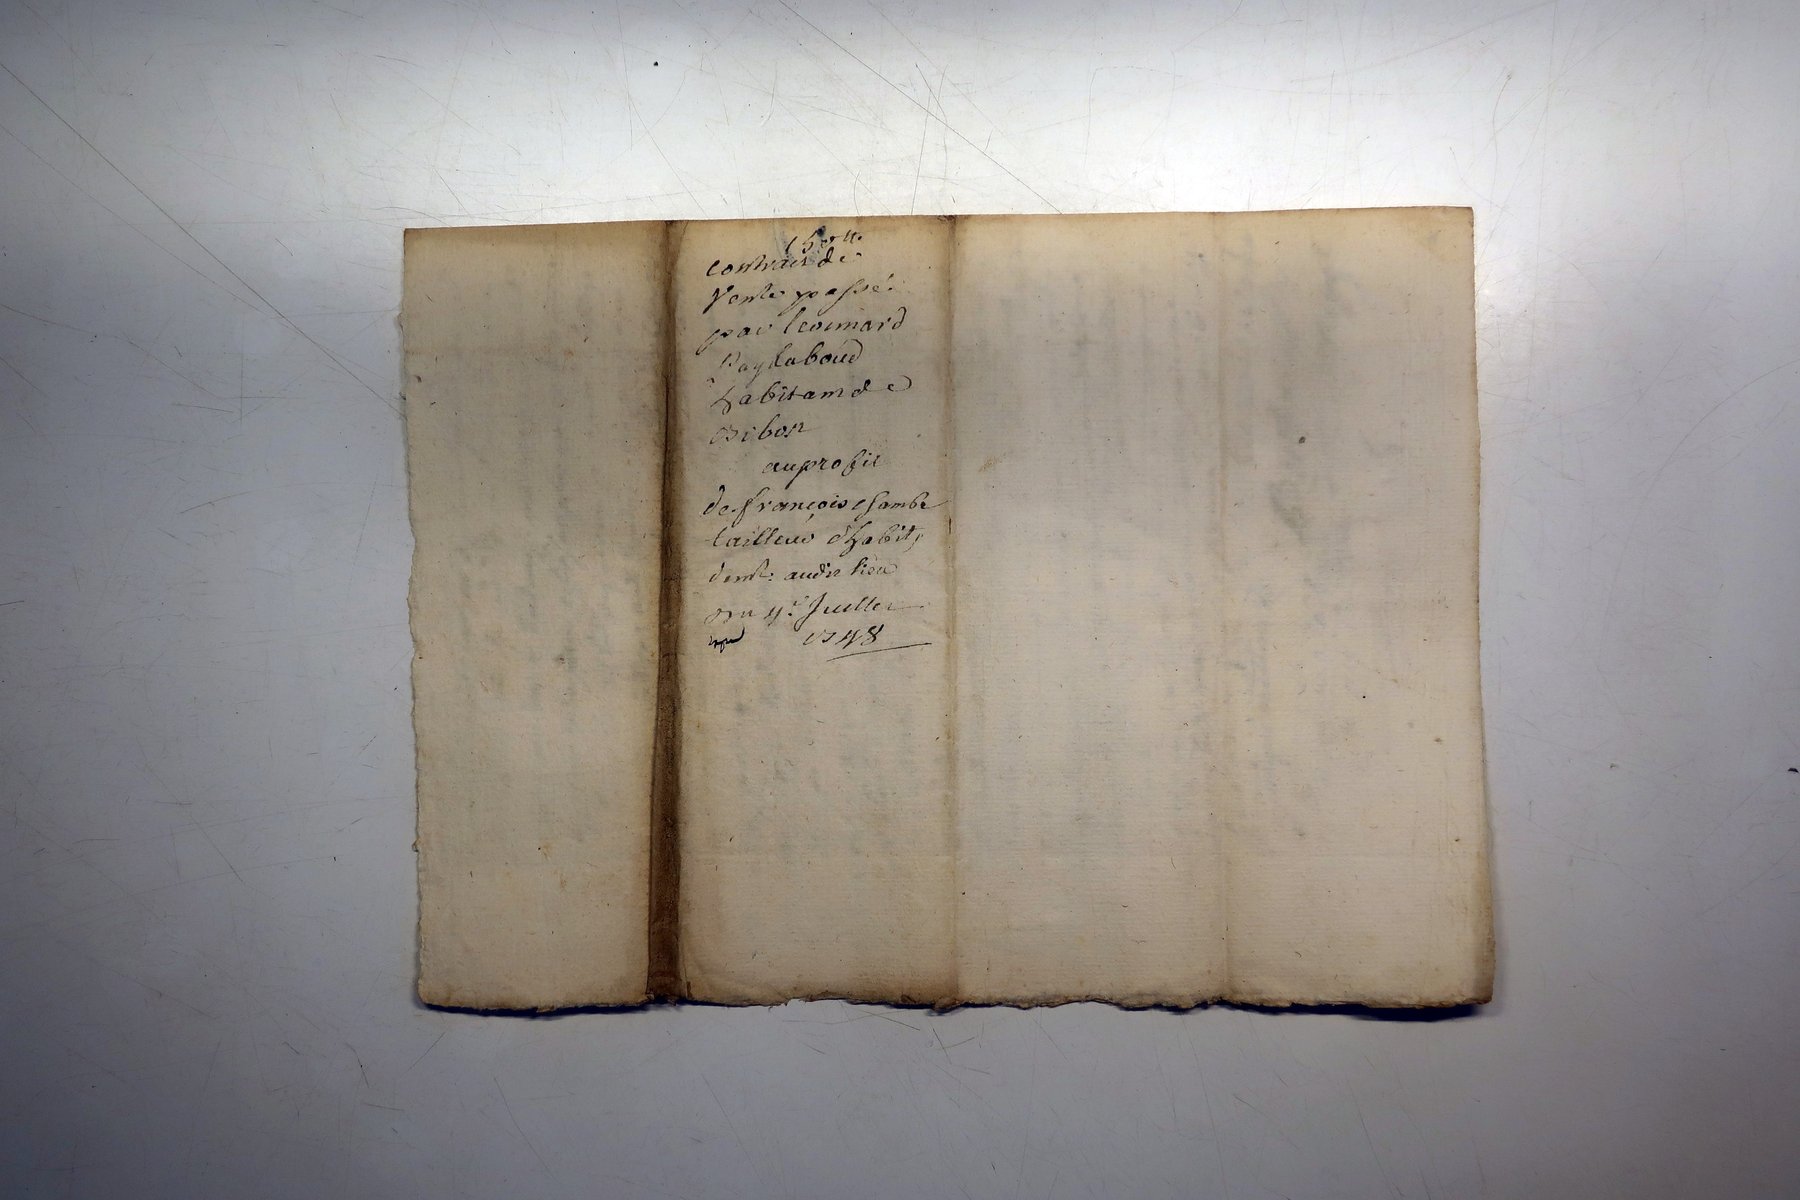 150 ₶
contrat de
Vente passé
par Leonnard
habitant de
au profit
de françois Chambe
tailleur d'habits
demt. audit lieu
Du 4e. Juillet
1748